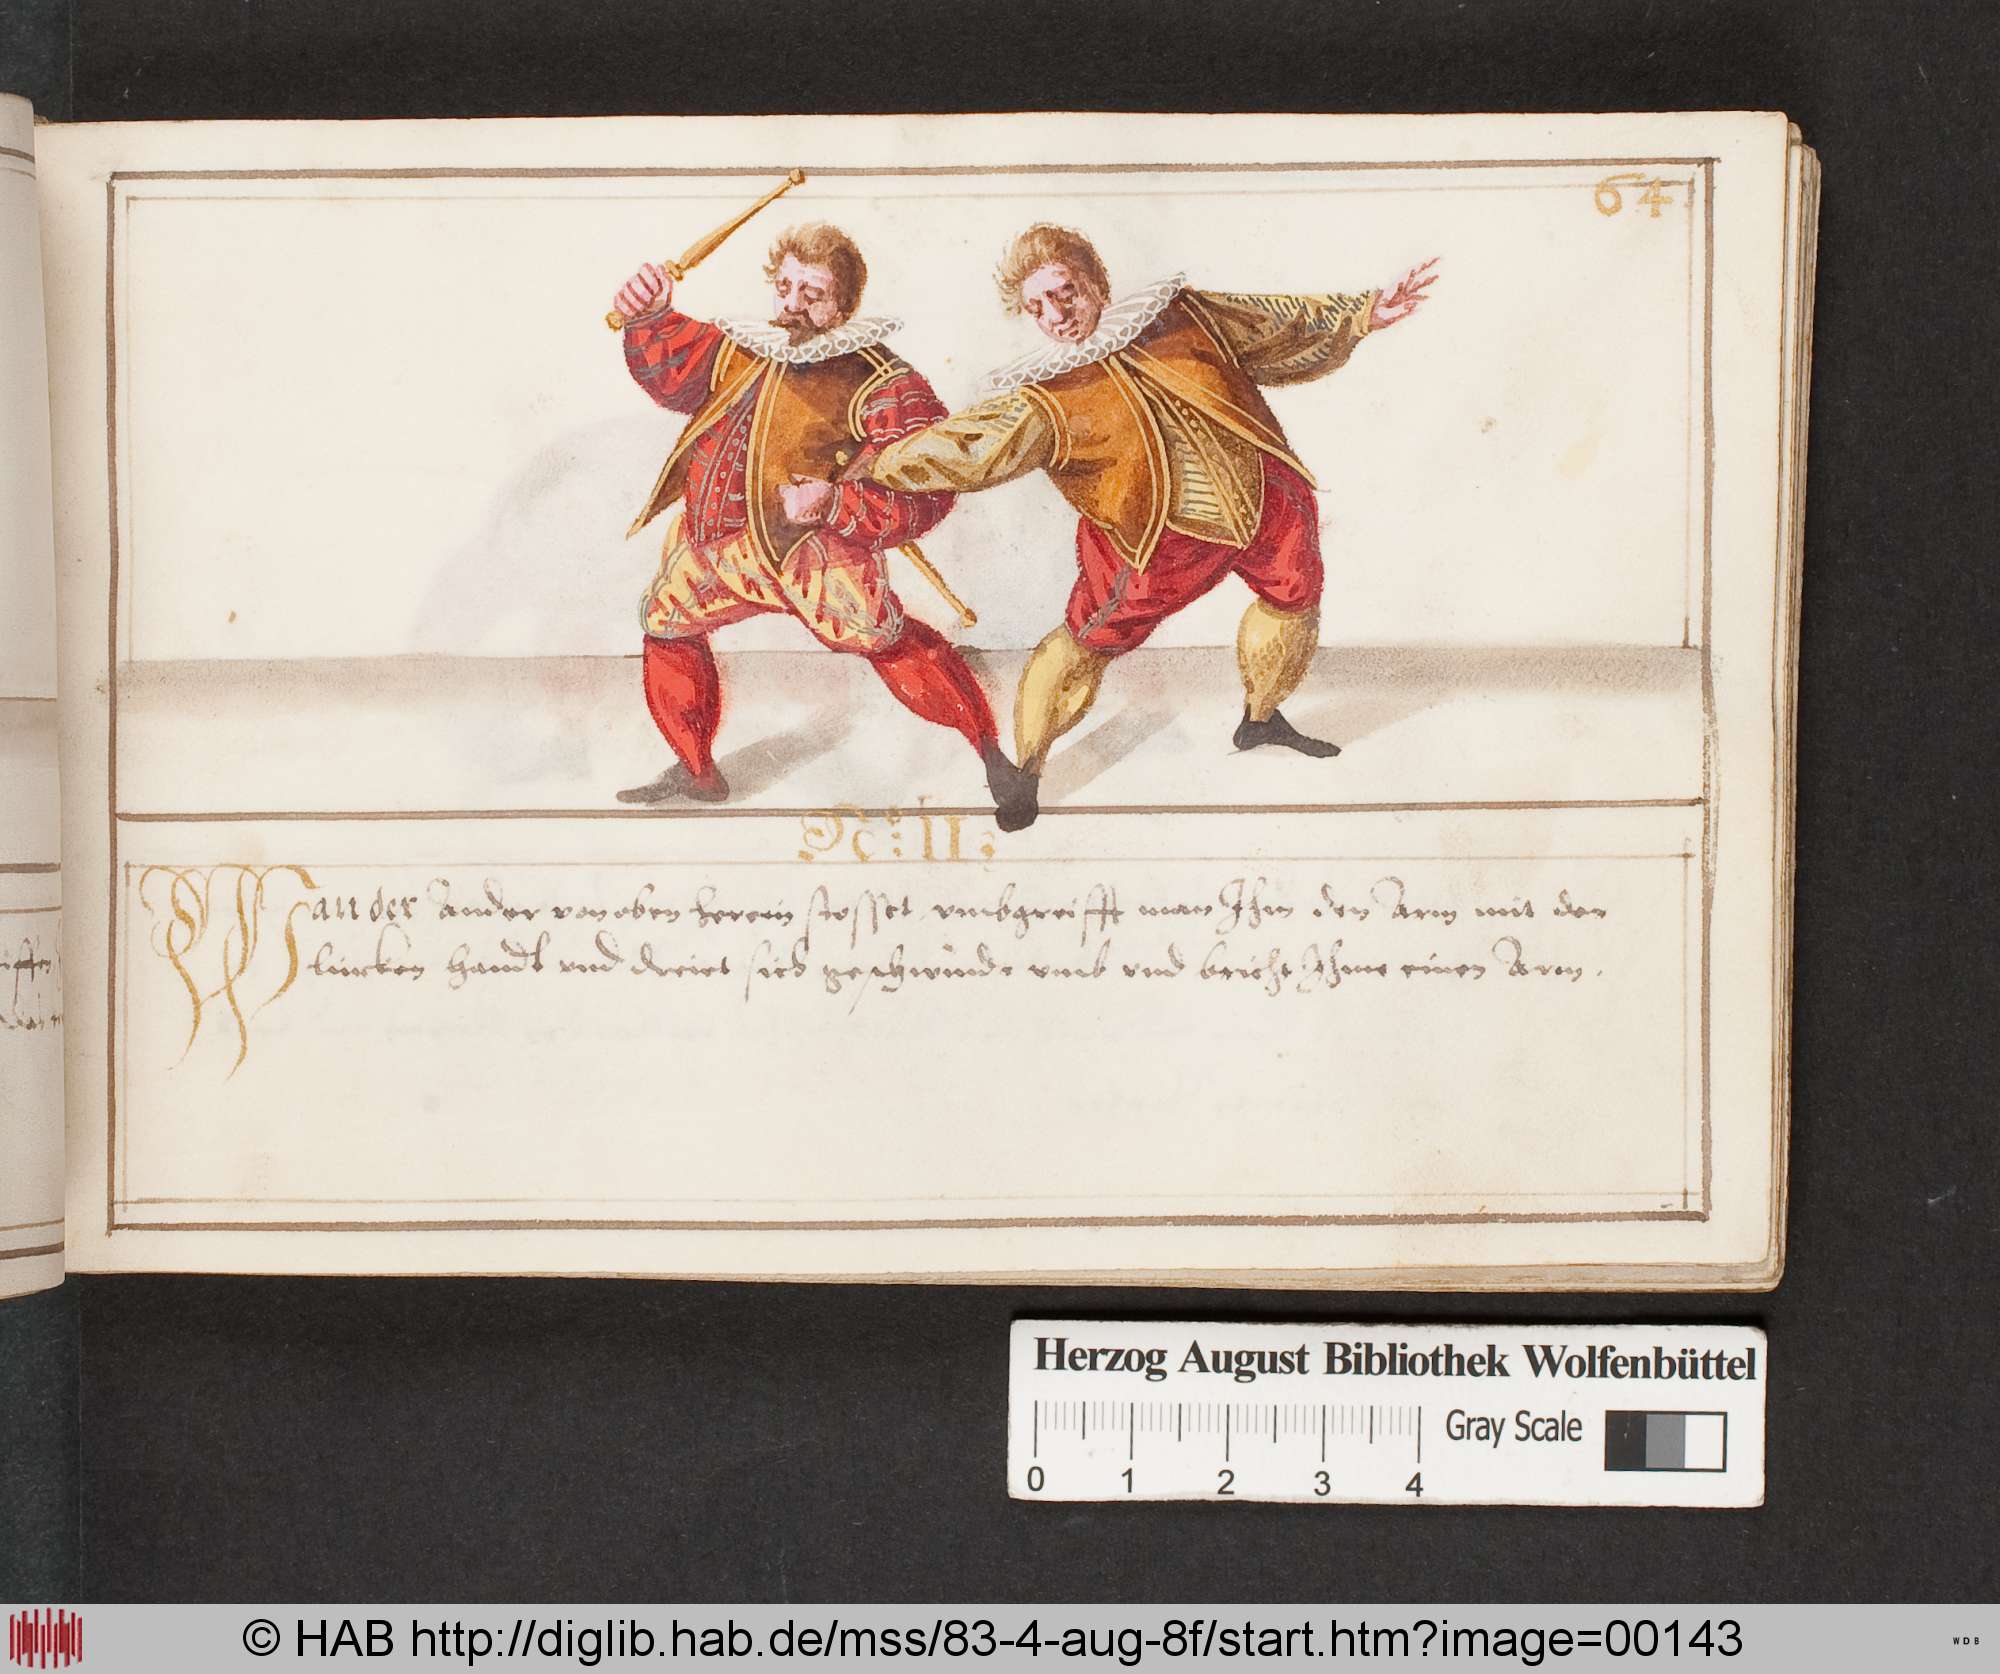 64
N: 11:
Wan der Ander von oben herein stosset, vmbgreifft man Ihm den Arm mit der
lincken handt vnd dreiet sich geschwinde vmb vnd bricht Ihme einen Arm.
iffen
Herzog August Bibliothek Wolfenbüttel
Gray Scale
0 1 2 3 4
© HAB http://diglib.hab.de/mss/83-4-aug-8f/start.htm?image=00143
WDB